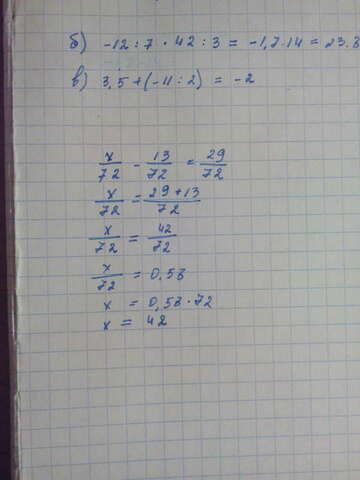 б) -12 : 7 · 42 : 3 = -1,7 · 14 = 23.8
в) 3,5 + (-11 : 2) = -2
x/72 - 13/72 = 29/72
x/72 = 29+13/72
x/72 = 42/72
x/72 = 0,58
x = 0,58 · 72
x = 42